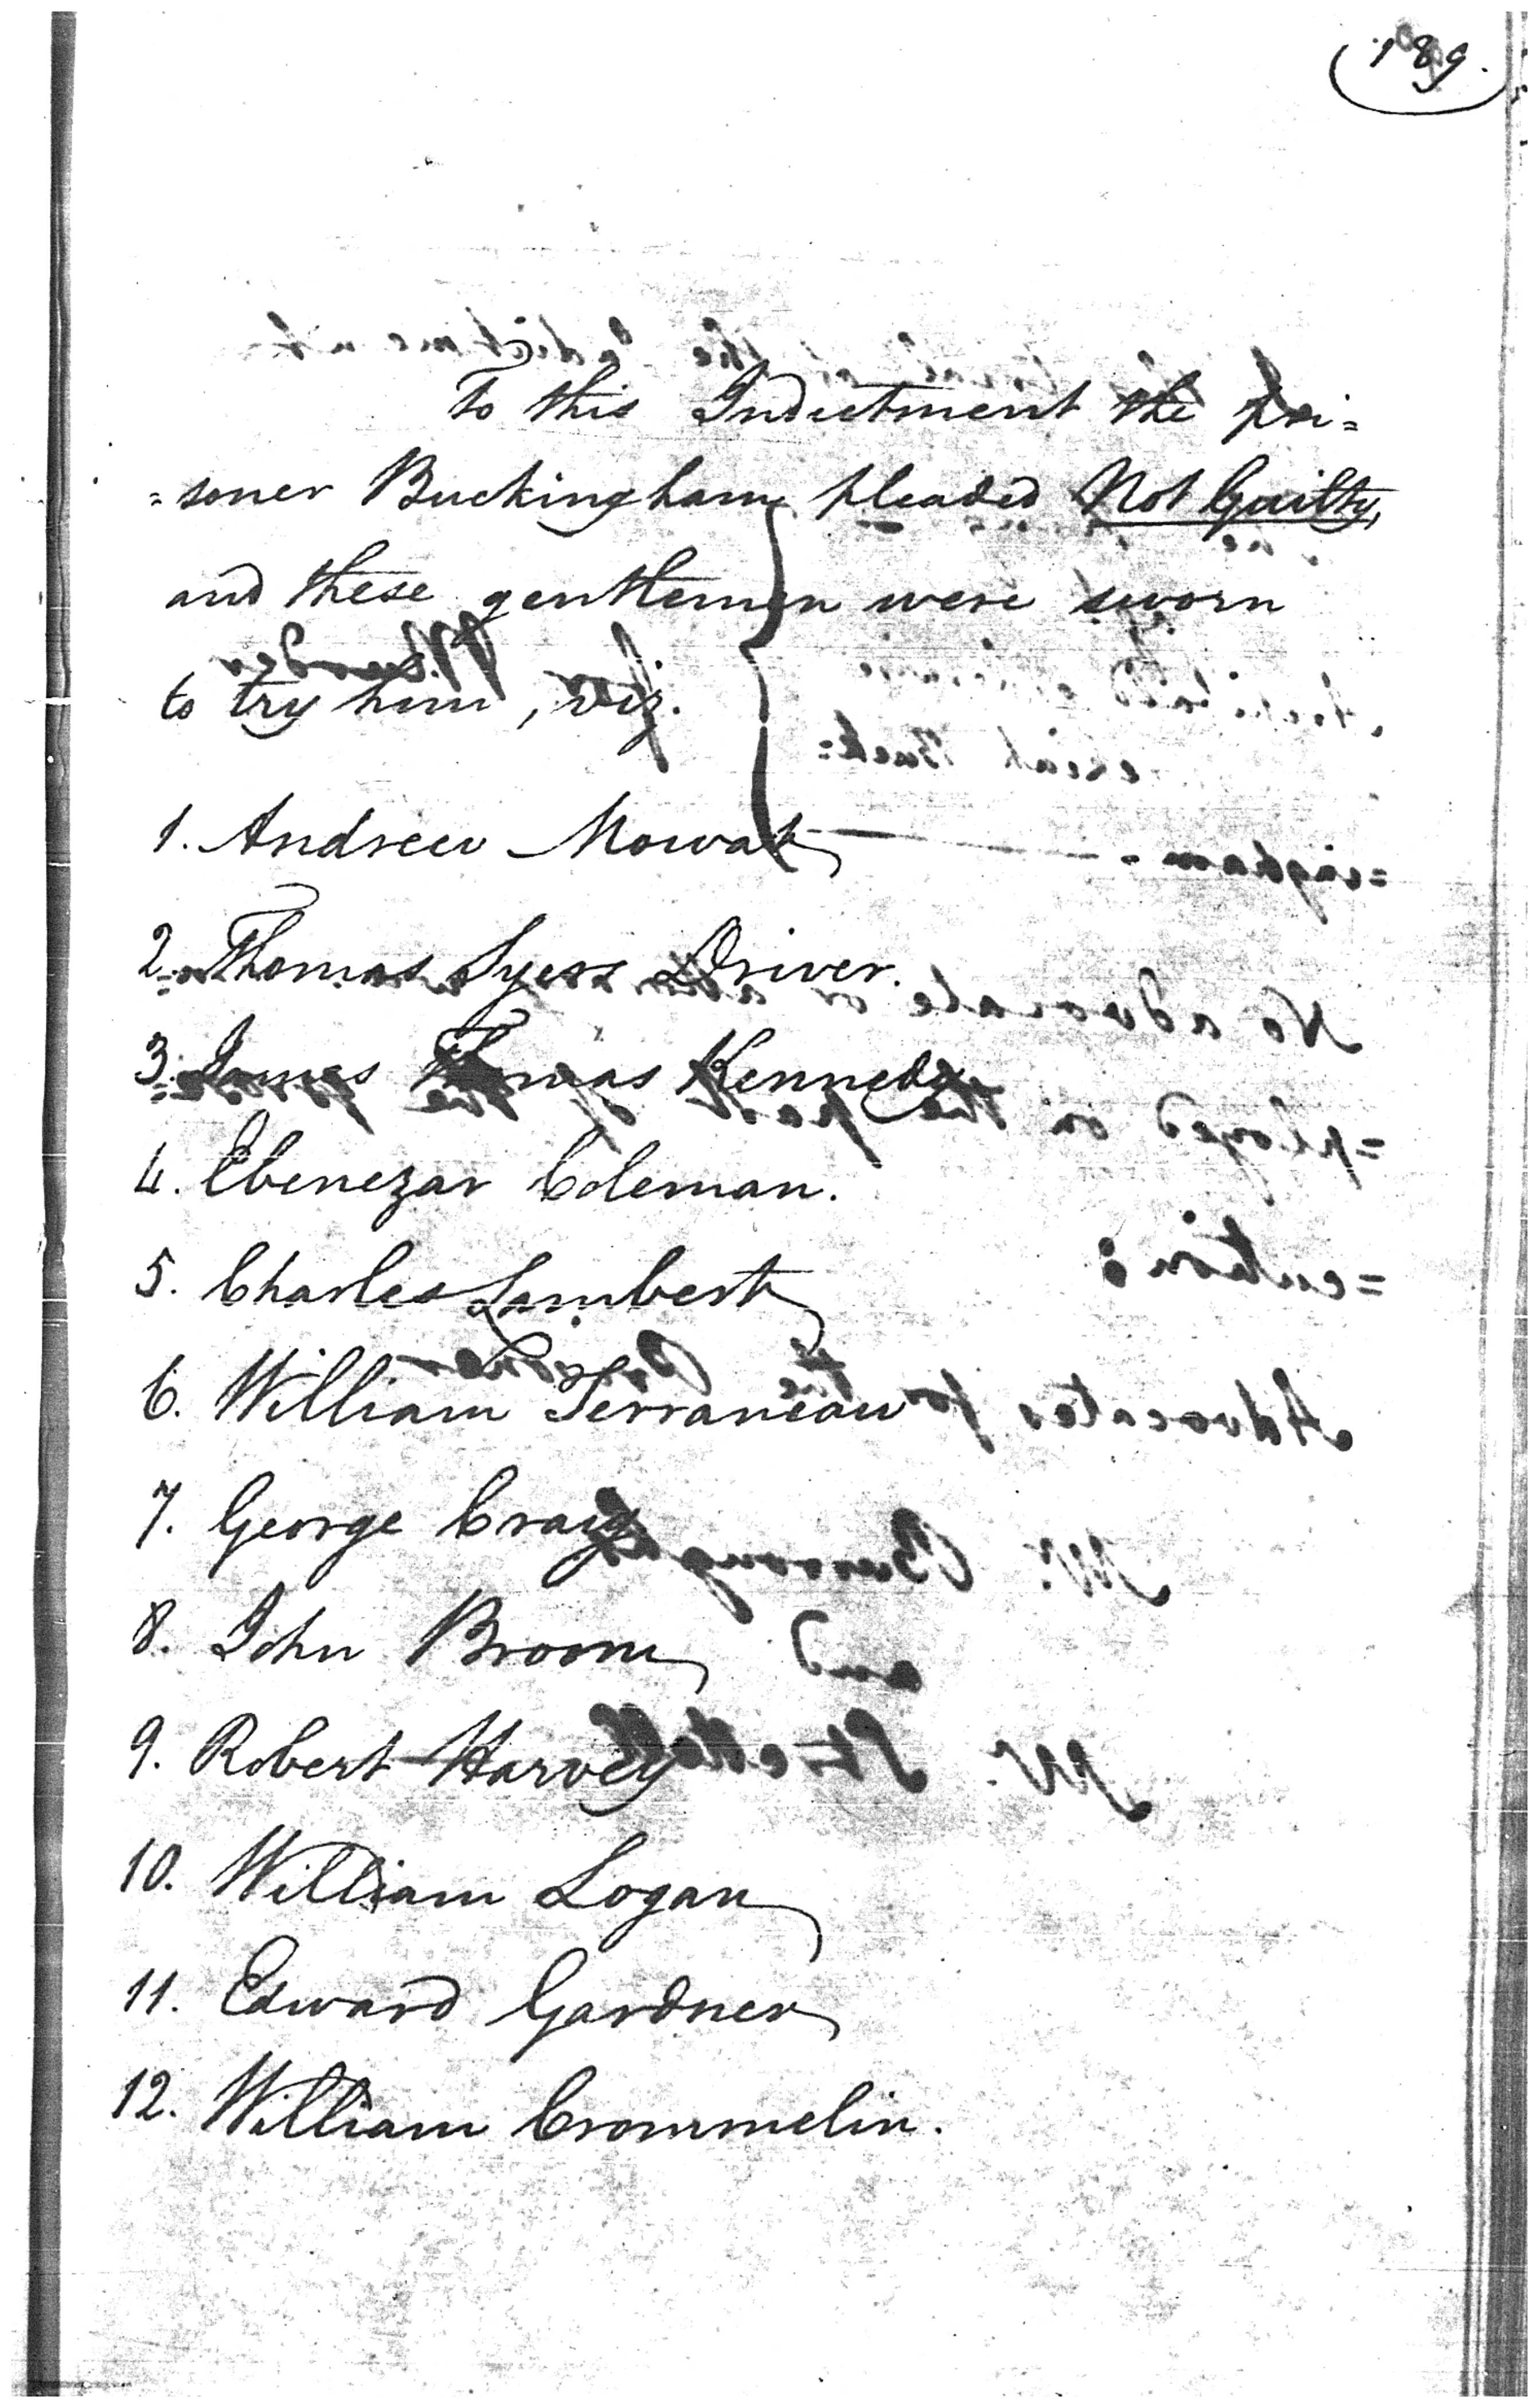 189.
To this Indictment the pri=
=soner Buckingham pleaded Not Guilty,
and these gentlemen were sworn
to try him, viz.
1. Andrew Mowat
2. Thomas Syers Driver.
3. James Thomas Kennedy
4. Ebenezar Coleman.
5. Charles Lambert
6. William Terraneau
7. George Craig
8. John Broom
9. Robert Harvey
10. William Logan
11. Edward Gardner
12. William Crommelin.